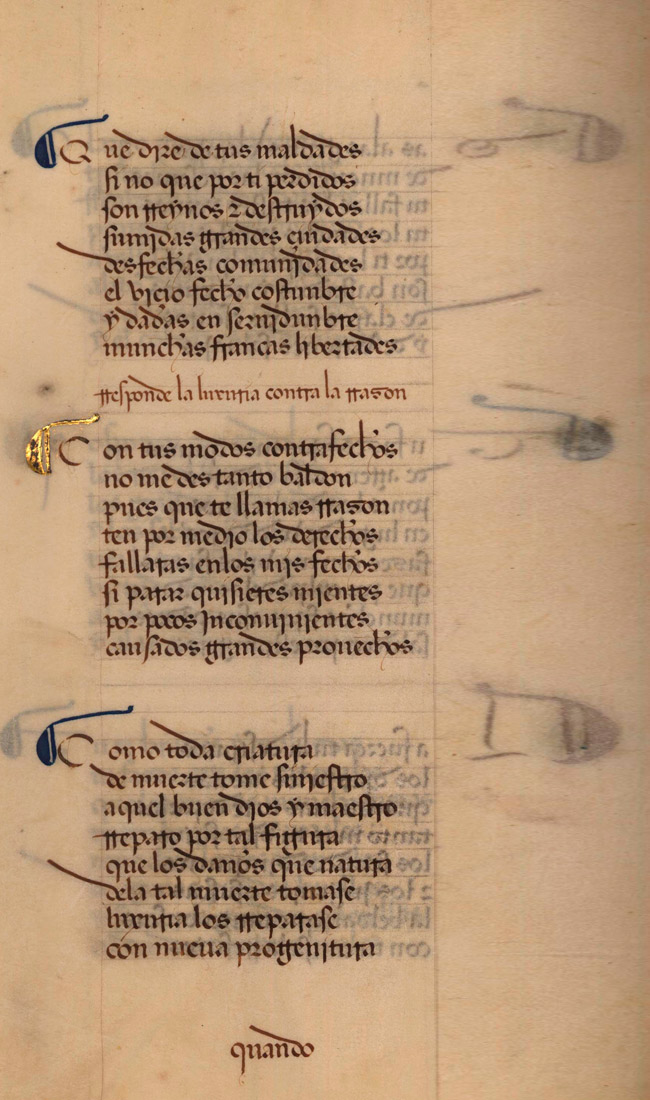 Que dire de tus maldades
si no que por ti perdidos
son rreynos z destruydos
sumidas grandes ciudades
desfechas comunidades
el vicio fecho costunbre
y dadas en seruidunbre
munchas francas libertades
rresponde la luxuria contra la rrazon
Con tus modos contrafechos
no me des tanto baldon
pues que te llamas rrazon
ten por medio los derechos
fallaras enlos mis fechos
si parar quisieres mientes
por pocos Inconuinientes
causados grandes prouechos
Como toda criatura
de muerte tome siniestro
aquel buen dios y maestro
rreparo por tal figura
que los daños que natura
dela tal muerte tomase
luxuria los rreparase
con nueua progenitura
quando